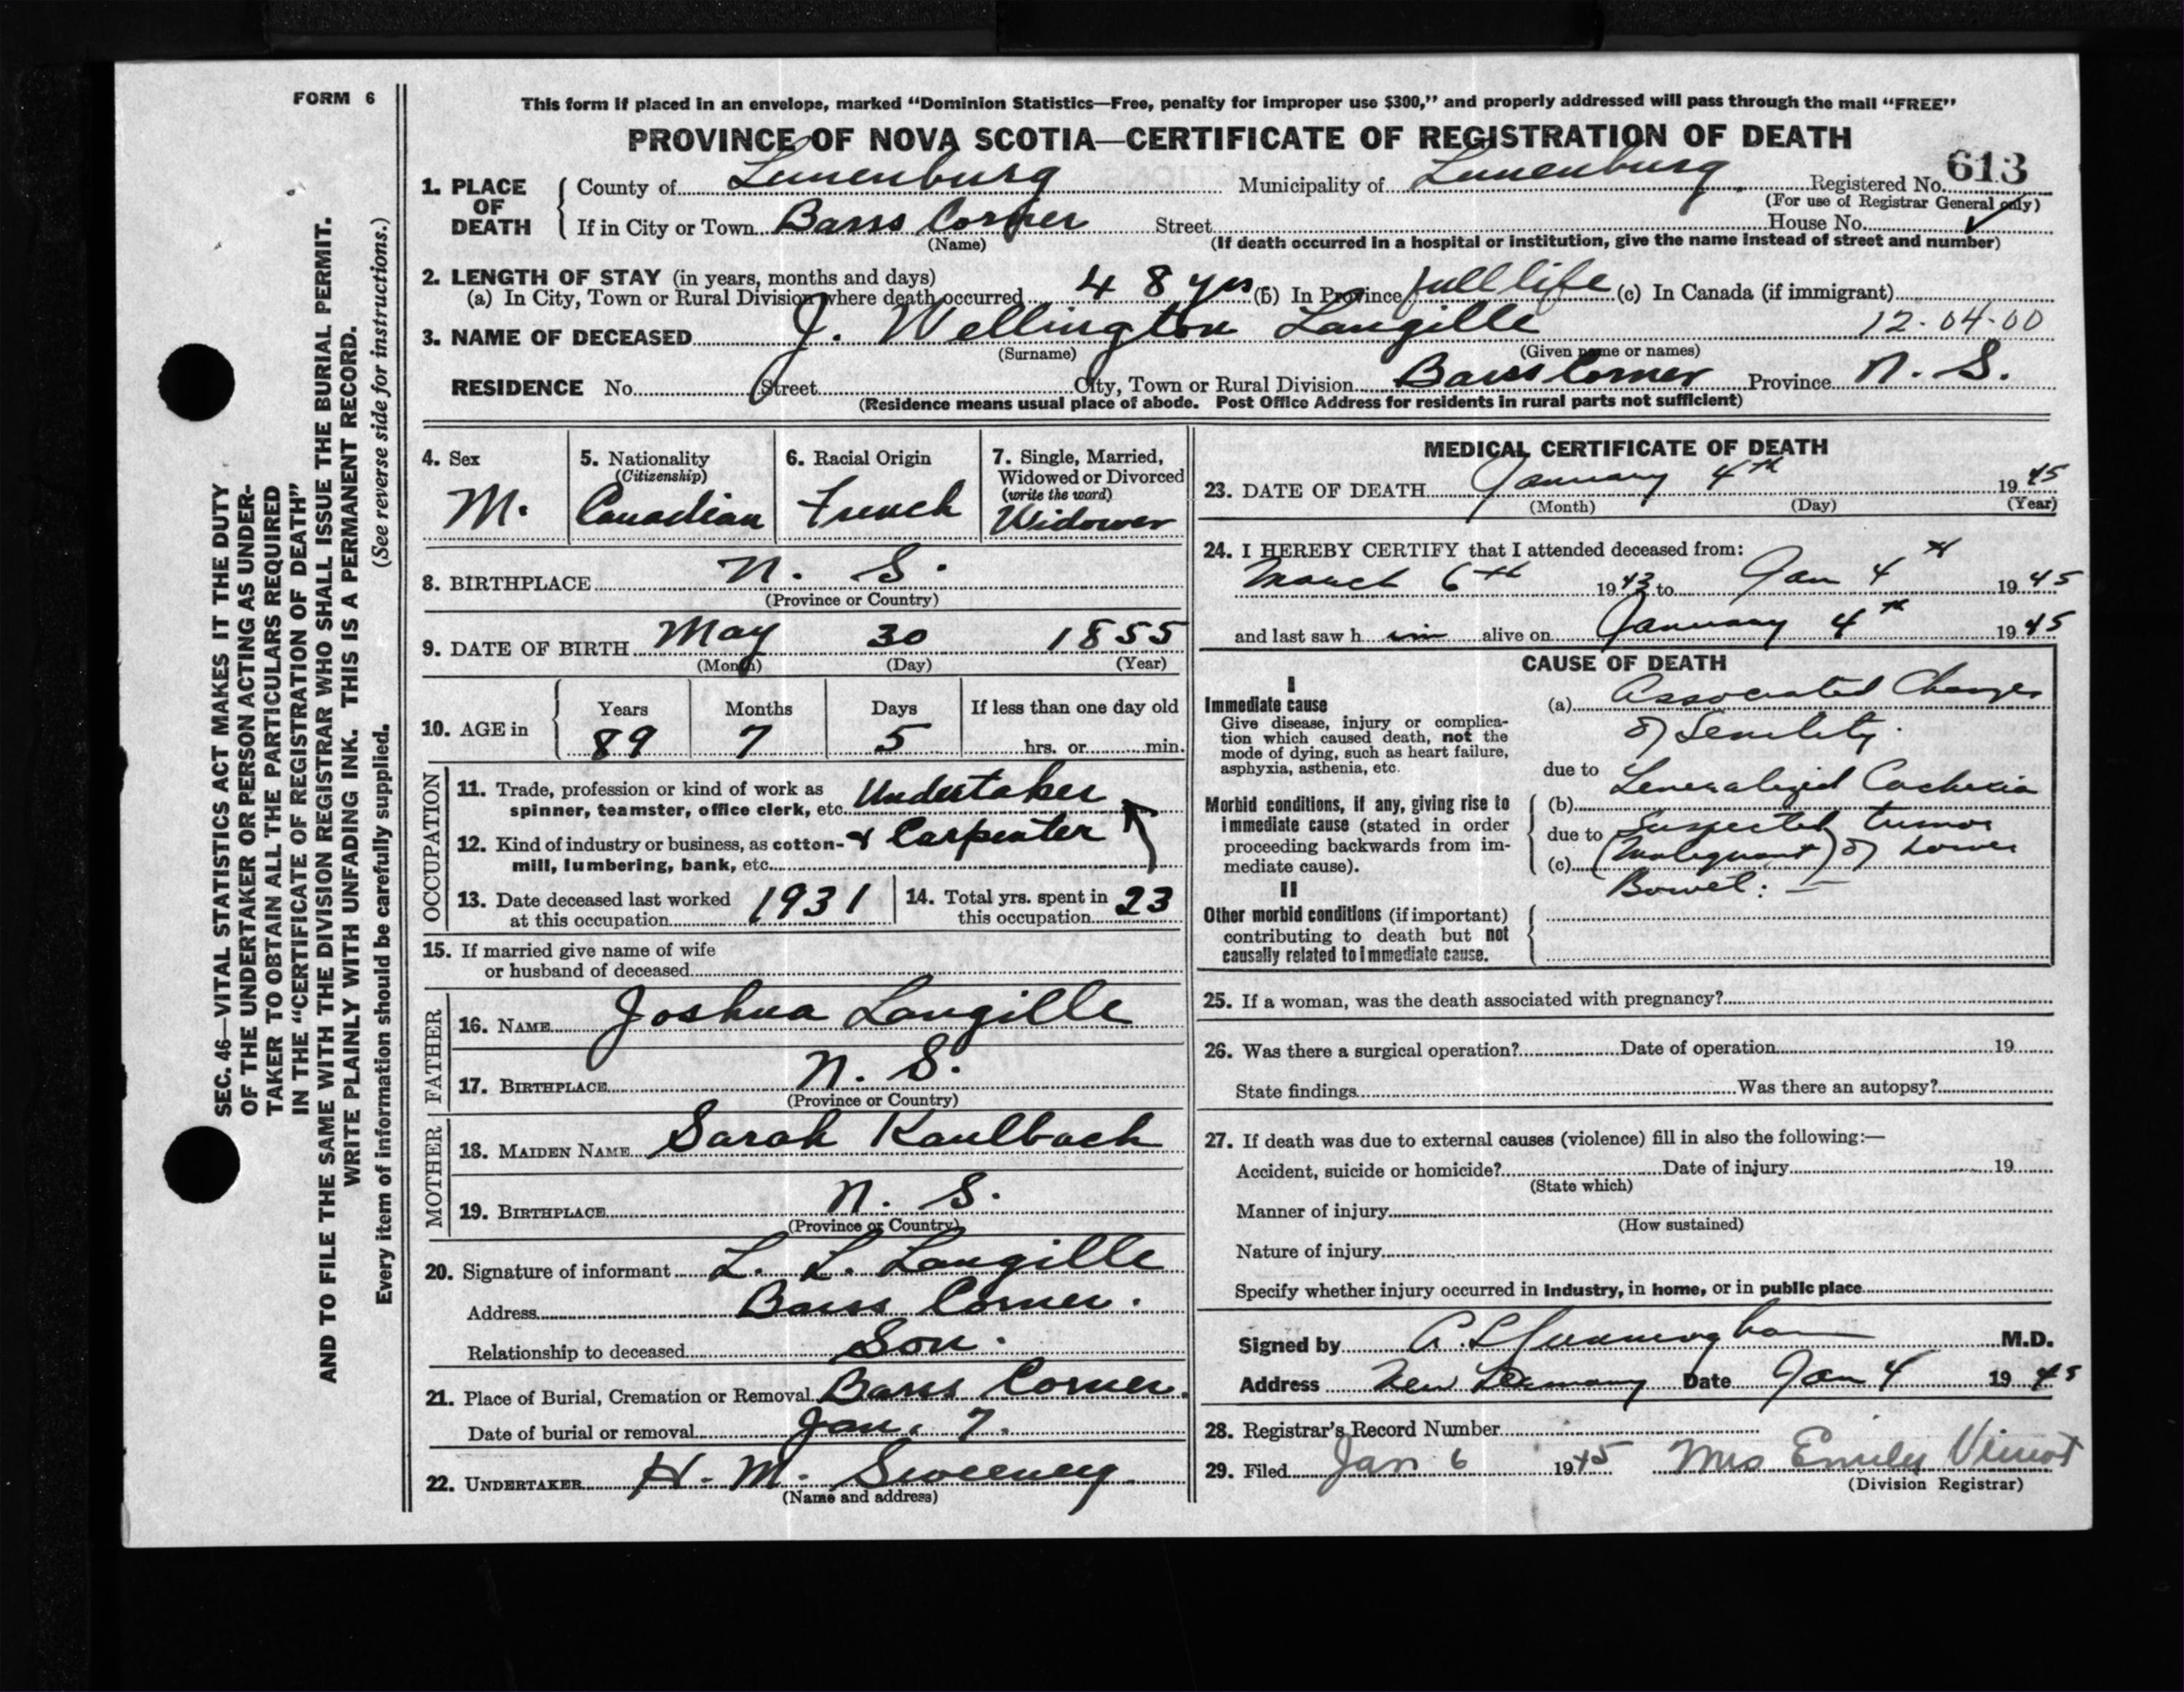 FORM 6
SEC. 46—VITAL STATISTICS ACT MAKES IT THE DUTY
OF THE UNDERTAKER OR PERSON ACTING AS UNDER-
TAKER TO OBTAIN ALL THE PARTICULARS REQUIRED
IN THE "CERTIFICATE OF REGISTRATION OF DEATH"
AND TO FILE THE SAME WITH THE DIVISION REGISTRAR WHO SHALL ISSUE THE BURIAL PERMIT.
WRITE PLAINLY WITH UNFADING INK. THIS IS A PERMANENT RECORD.
Every item of information should be carefully supplied. (See reverse side for instructions.)
This form if placed in an envelope, marked "Dominion Statistics—Free, penalty for improper use $300," and properly addressed will pass through the mail "FREE"
PROVINCE OF NOVA SCOTIA—CERTIFICATE OF REGISTRATION OF DEATH
1. PLACE OF DEATH
County of Lunenburg Municipality of Lunenburg Registered No. 613
(For use of Registrar General only)
If in City or Town Barss Corner Street House No.
(Name) (If death occurred in a hospital or institution, give the name instead of street and number)
2. LENGTH OF STAY (in years, months and days)
(a) In City, Town or Rural Division where death occurred 48 yrs (b) In Province full life (c) In Canada (if immigrant)
3. NAME OF DECEASED J. Wellington Langille 12-04-00
(Surname) (Given name or names)
RESIDENCE No. Street City, Town or Rural Division Barss Corner Province N. S.
(Residence means usual place of abode. Post Office Address for residents in rural parts not sufficient)
4. Sex M.
5. Nationality (Citizenship) Canadian
6. Racial Origin French
7. Single, Married, Widowed or Divorced (write the word) Widower
8. BIRTHPLACE N. S.
(Province or Country)
9. DATE OF BIRTH May 30 1855
(Month) (Day) (Year)
10. AGE in Years 89 Months 7 Days 5 If less than one day old hrs. or min.
OCCUPATION
11. Trade, profession or kind of work as spinner, teamster, office clerk, etc. Undertaker
12. Kind of industry or business, as cotton-mill, lumbering, bank, etc. & Carpenter
13. Date deceased last worked at this occupation 1931
14. Total yrs. spent in this occupation 23
15. If married give name of wife
or husband of deceased
FATHER
16. NAME Joshua Langille
17. BIRTHPLACE N. S.
(Province or Country)
MOTHER
18. MAIDEN NAME Sarah Kaulback
19. BIRTHPLACE N. S.
(Province or Country)
20. Signature of informant L. L. Langille
Address Barss Corner.
Relationship to deceased Son.
21. Place of Burial, Cremation or Removal Barss Corner.
Date of burial or removal Jan. 7.
22. UNDERTAKER H. M. Sweeney
(Name and address)
MEDICAL CERTIFICATE OF DEATH
23. DATE OF DEATH January 4th 1945
(Month) (Day) (Year)
24. I HEREBY CERTIFY that I attended deceased from:
March 6th 1943 to Jan 4th 1945
and last saw him alive on January 4th 1945
CAUSE OF DEATH
I
Immediate cause
Give disease, injury or complica-
tion which caused death, not the
mode of dying, such as heart failure,
asphyxia, asthenia, etc.
(a) Associated Changes
of Senility.
due to
Morbid conditions, if any, giving rise to
immediate cause (stated in order
proceeding backwards from im-
mediate cause).
(b) Generalized Cachexia
due to Suspected tumor
(c) (Malignant) of Lower
Bowel:
II
Other morbid conditions (if important)
contributing to death but not
causally related to immediate cause.
25. If a woman, was the death associated with pregnancy?
26. Was there a surgical operation? Date of operation 19
State findings Was there an autopsy?
27. If death was due to external causes (violence) fill in also the following:—
Accident, suicide or homicide? Date of injury 19
(State which)
Manner of injury
(How sustained)
Nature of injury
Specify whether injury occurred in industry, in home, or in public place
Signed by M.D.
Address New Germany Date Jan 4 1945
28. Registrar's Record Number
29. Filed Jan 6 1945 Mrs Emily
(Division Registrar)